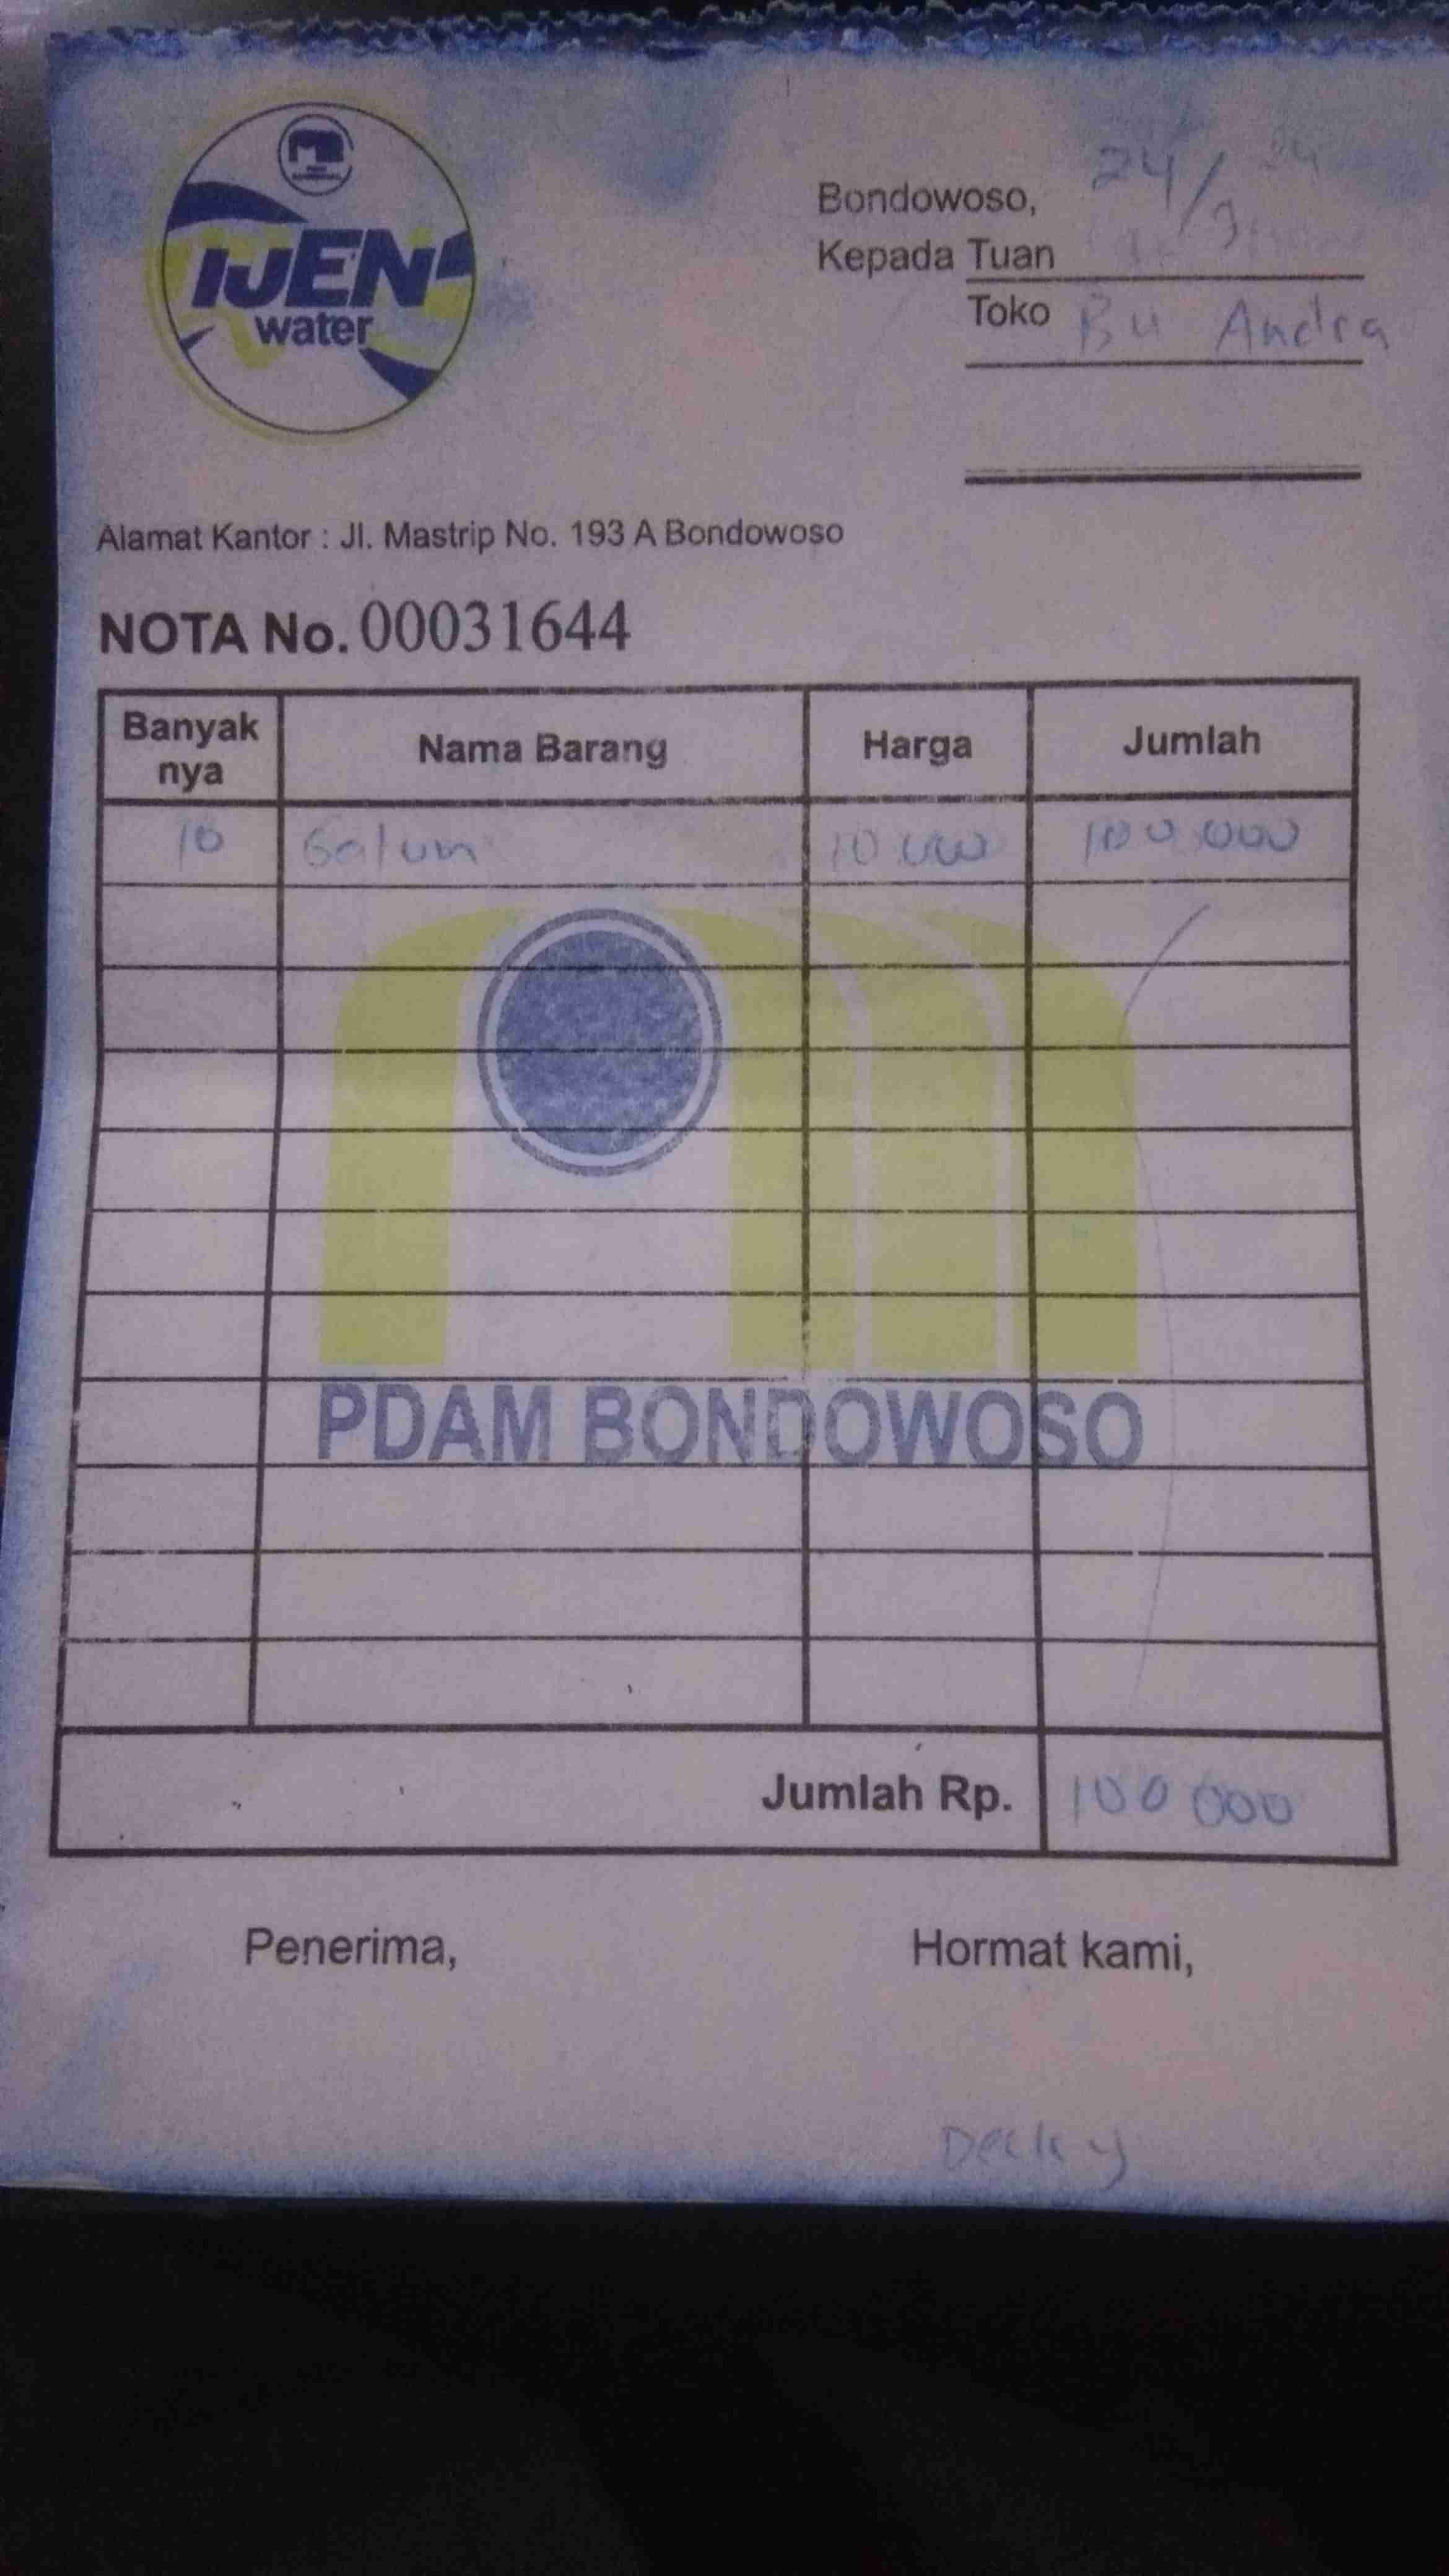 IJEN
water
Bondowoso, 24/9 24
Kepada Tuan
Toko Bu Andra
Alamat Kantor : Jl. Mastrip No. 193 A Bondowoso
NOTA No. 00031644
Banyak nya Nama Barang Harga Jumlah
10 Galon 10.000 100.000
PDAM BONDOWOSO
Jumlah Rp. 100 000
Penerima, Hormat kami,